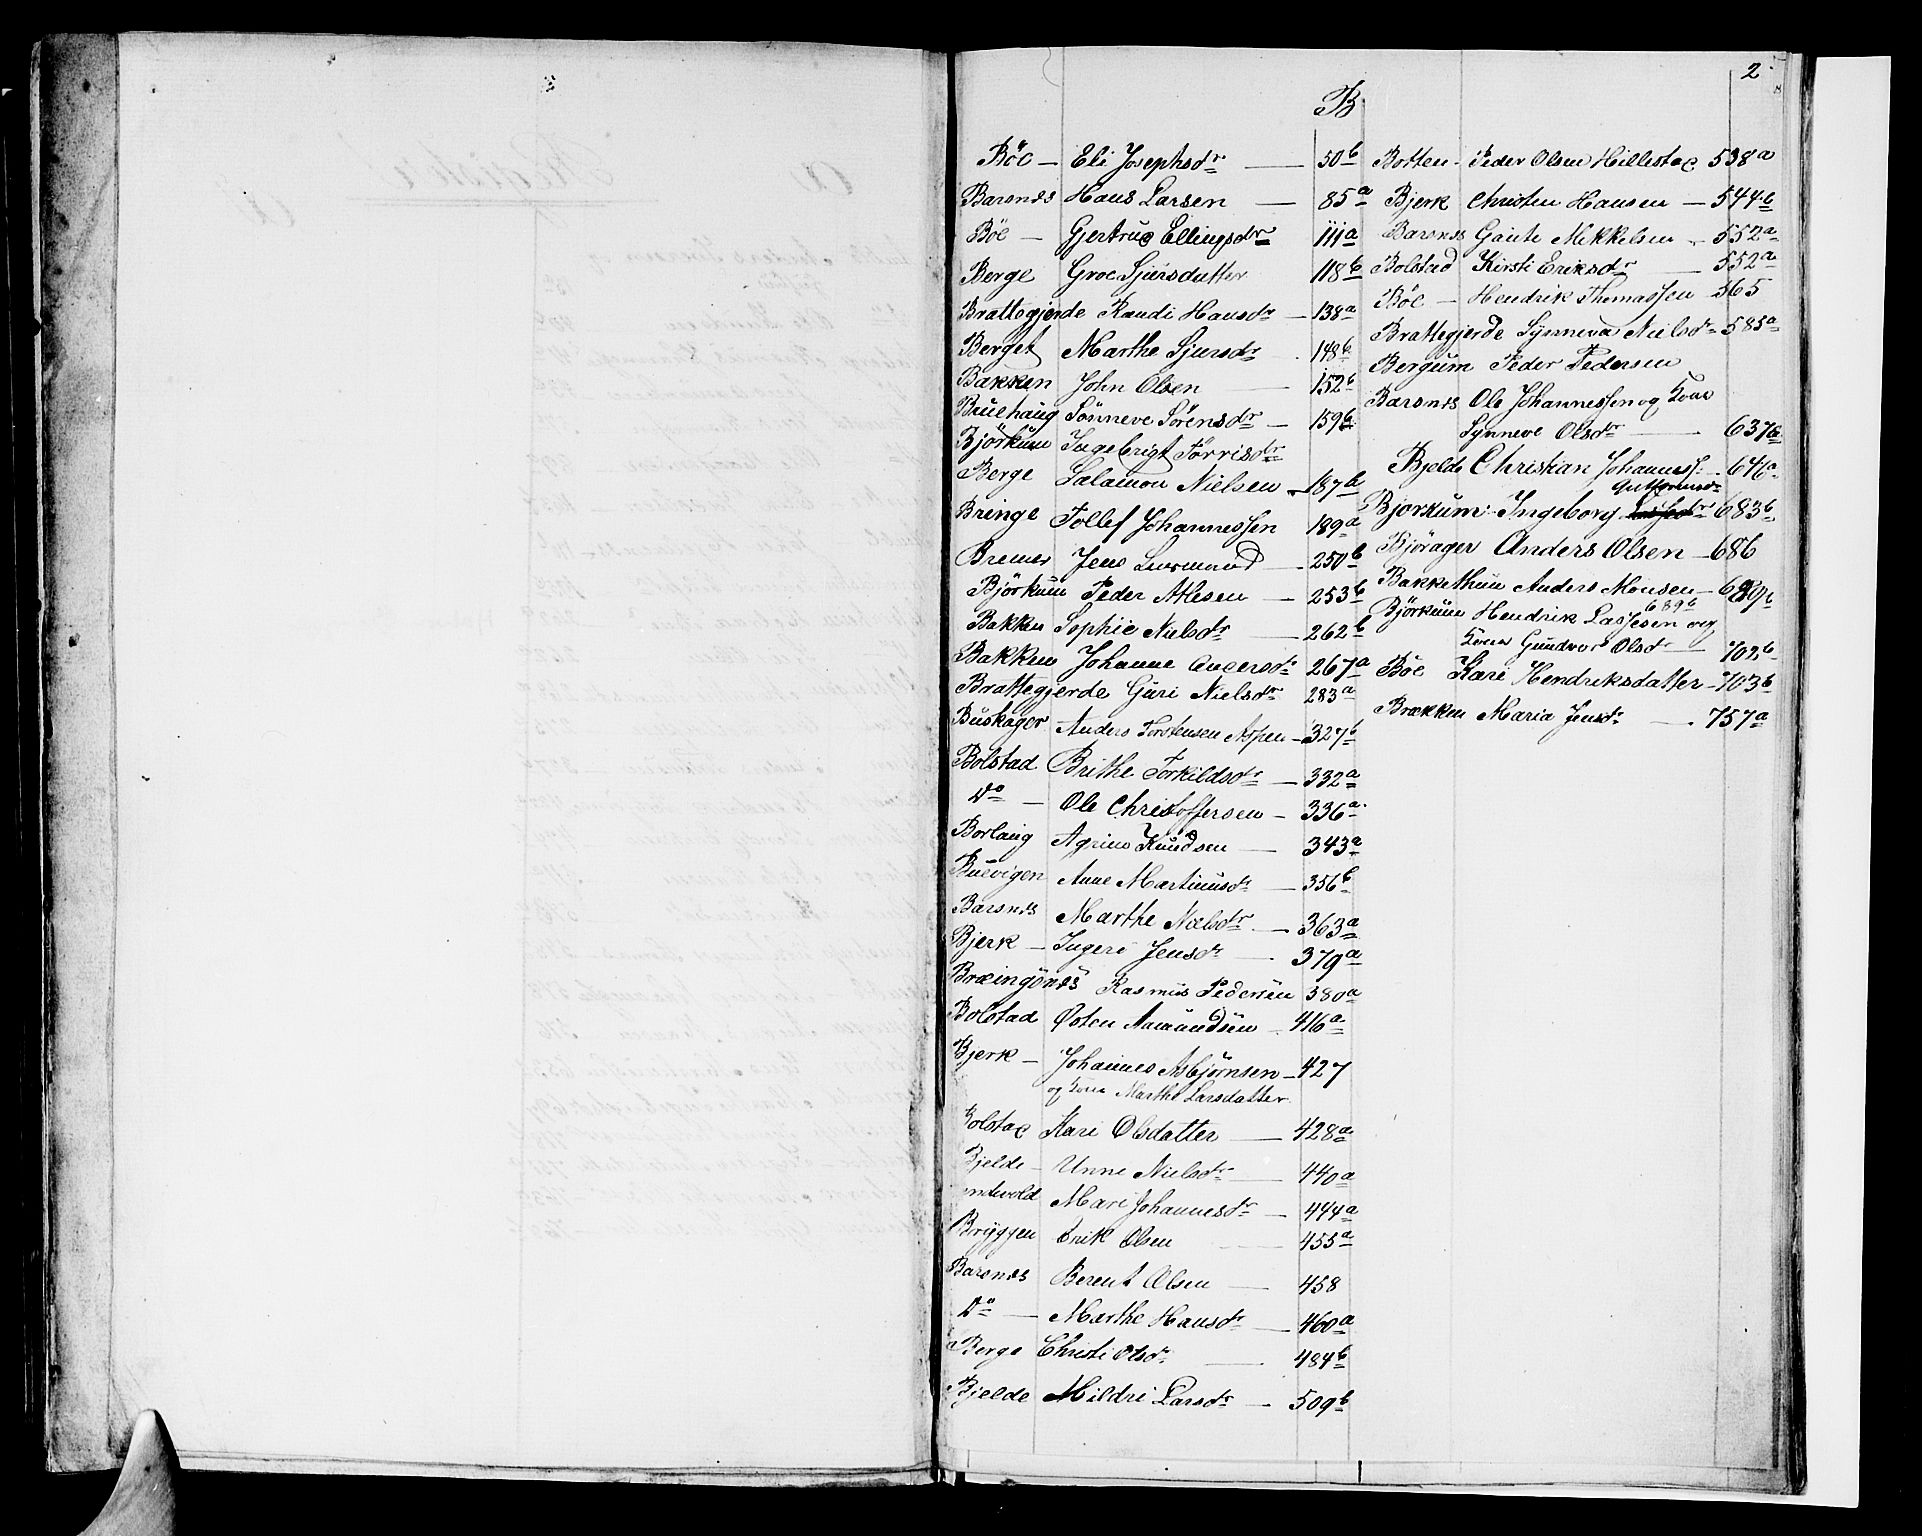 2
B.
Böe — Eli Josephsdr — 50b
Barsnes Hans Larsen — 85a
Böe — Gjertrud Ellingsdr 111a
Berge Groe Sjursdatter 118b
Brattegjerde Randi Hansdr — 138a
Berget Marthe Sjursdr 148b
Bakken John Olsen — 152b
Bruehaug Sönneve Sörensdr — 159b
Björkum Ingebrigt Torrisdr
Berge Salamon Nielsen — 187b
Bringe Tollef Johannessen 189a
Bremer Jens — 250b
Björkum Peder Atlesen — 253b
Bakken Sophie Nielsdr — 262b
Bakken Johanne Andersdr 267a
Brattegjerde Guri Nielsdr 283a
Buskager Anders Torstensen Aspen — 327b
Bolstad Brithe Torkildsdr — 332a
Do — Ole Christoffersen — 336a
Borlaug Agrim Knudsen — 343a
Buevigen Anne Martinusdr — 356b
Barsnes Marthe Nielsdr — 363a
Bjerk — Ingeri Jensdr — 379a
Rasmus Pedersen 380a
Bolstad Østen Amundsen — 416a
Bjerk — Johannes Asbjørnsen — 427
og Kone Marthe Larsdatter
Bolstad Kari Olsdatter — 428a
Bjelde — Unni Nielsdr — 440a
Mari Johannesdr — 444a
Bryggen Erik Olsen — 455a
Barsnes Berent Olsen — 458
Do — Marthe Hansdr — 460a
Berge Christi Olsdr — 484b
Bjelde Mildri Larsdr — 509b
Botten — Peder Olsen Hillestad 538a
Bjerk Christen Hansen — 544b
Barsnes Gaute Mikkelsen — 552a
Bolstad Kirsti Eriksdr — 552a
Böe — Hendrik Thomassen — 565
Brattegjerde Synneva Nielsdr 585a
Bergum Peder Pedersen
Barsnes Ole Johannessen og Kone
Synneve Olsdr — 637a
Bjelde Christian Johanness: — 646a
Guttormsdr
Bjorkum Ingeborg 683b
Björager Anders Olsen — 686
Bakkethun Anders Monsen — 689b
689b
Björkum Hendrik Lassesen og
Kone Gundvor Olsdr — 702b
Böe Kari Hendriksdatter — 703b
Brækken Maria Jensdr — 757a